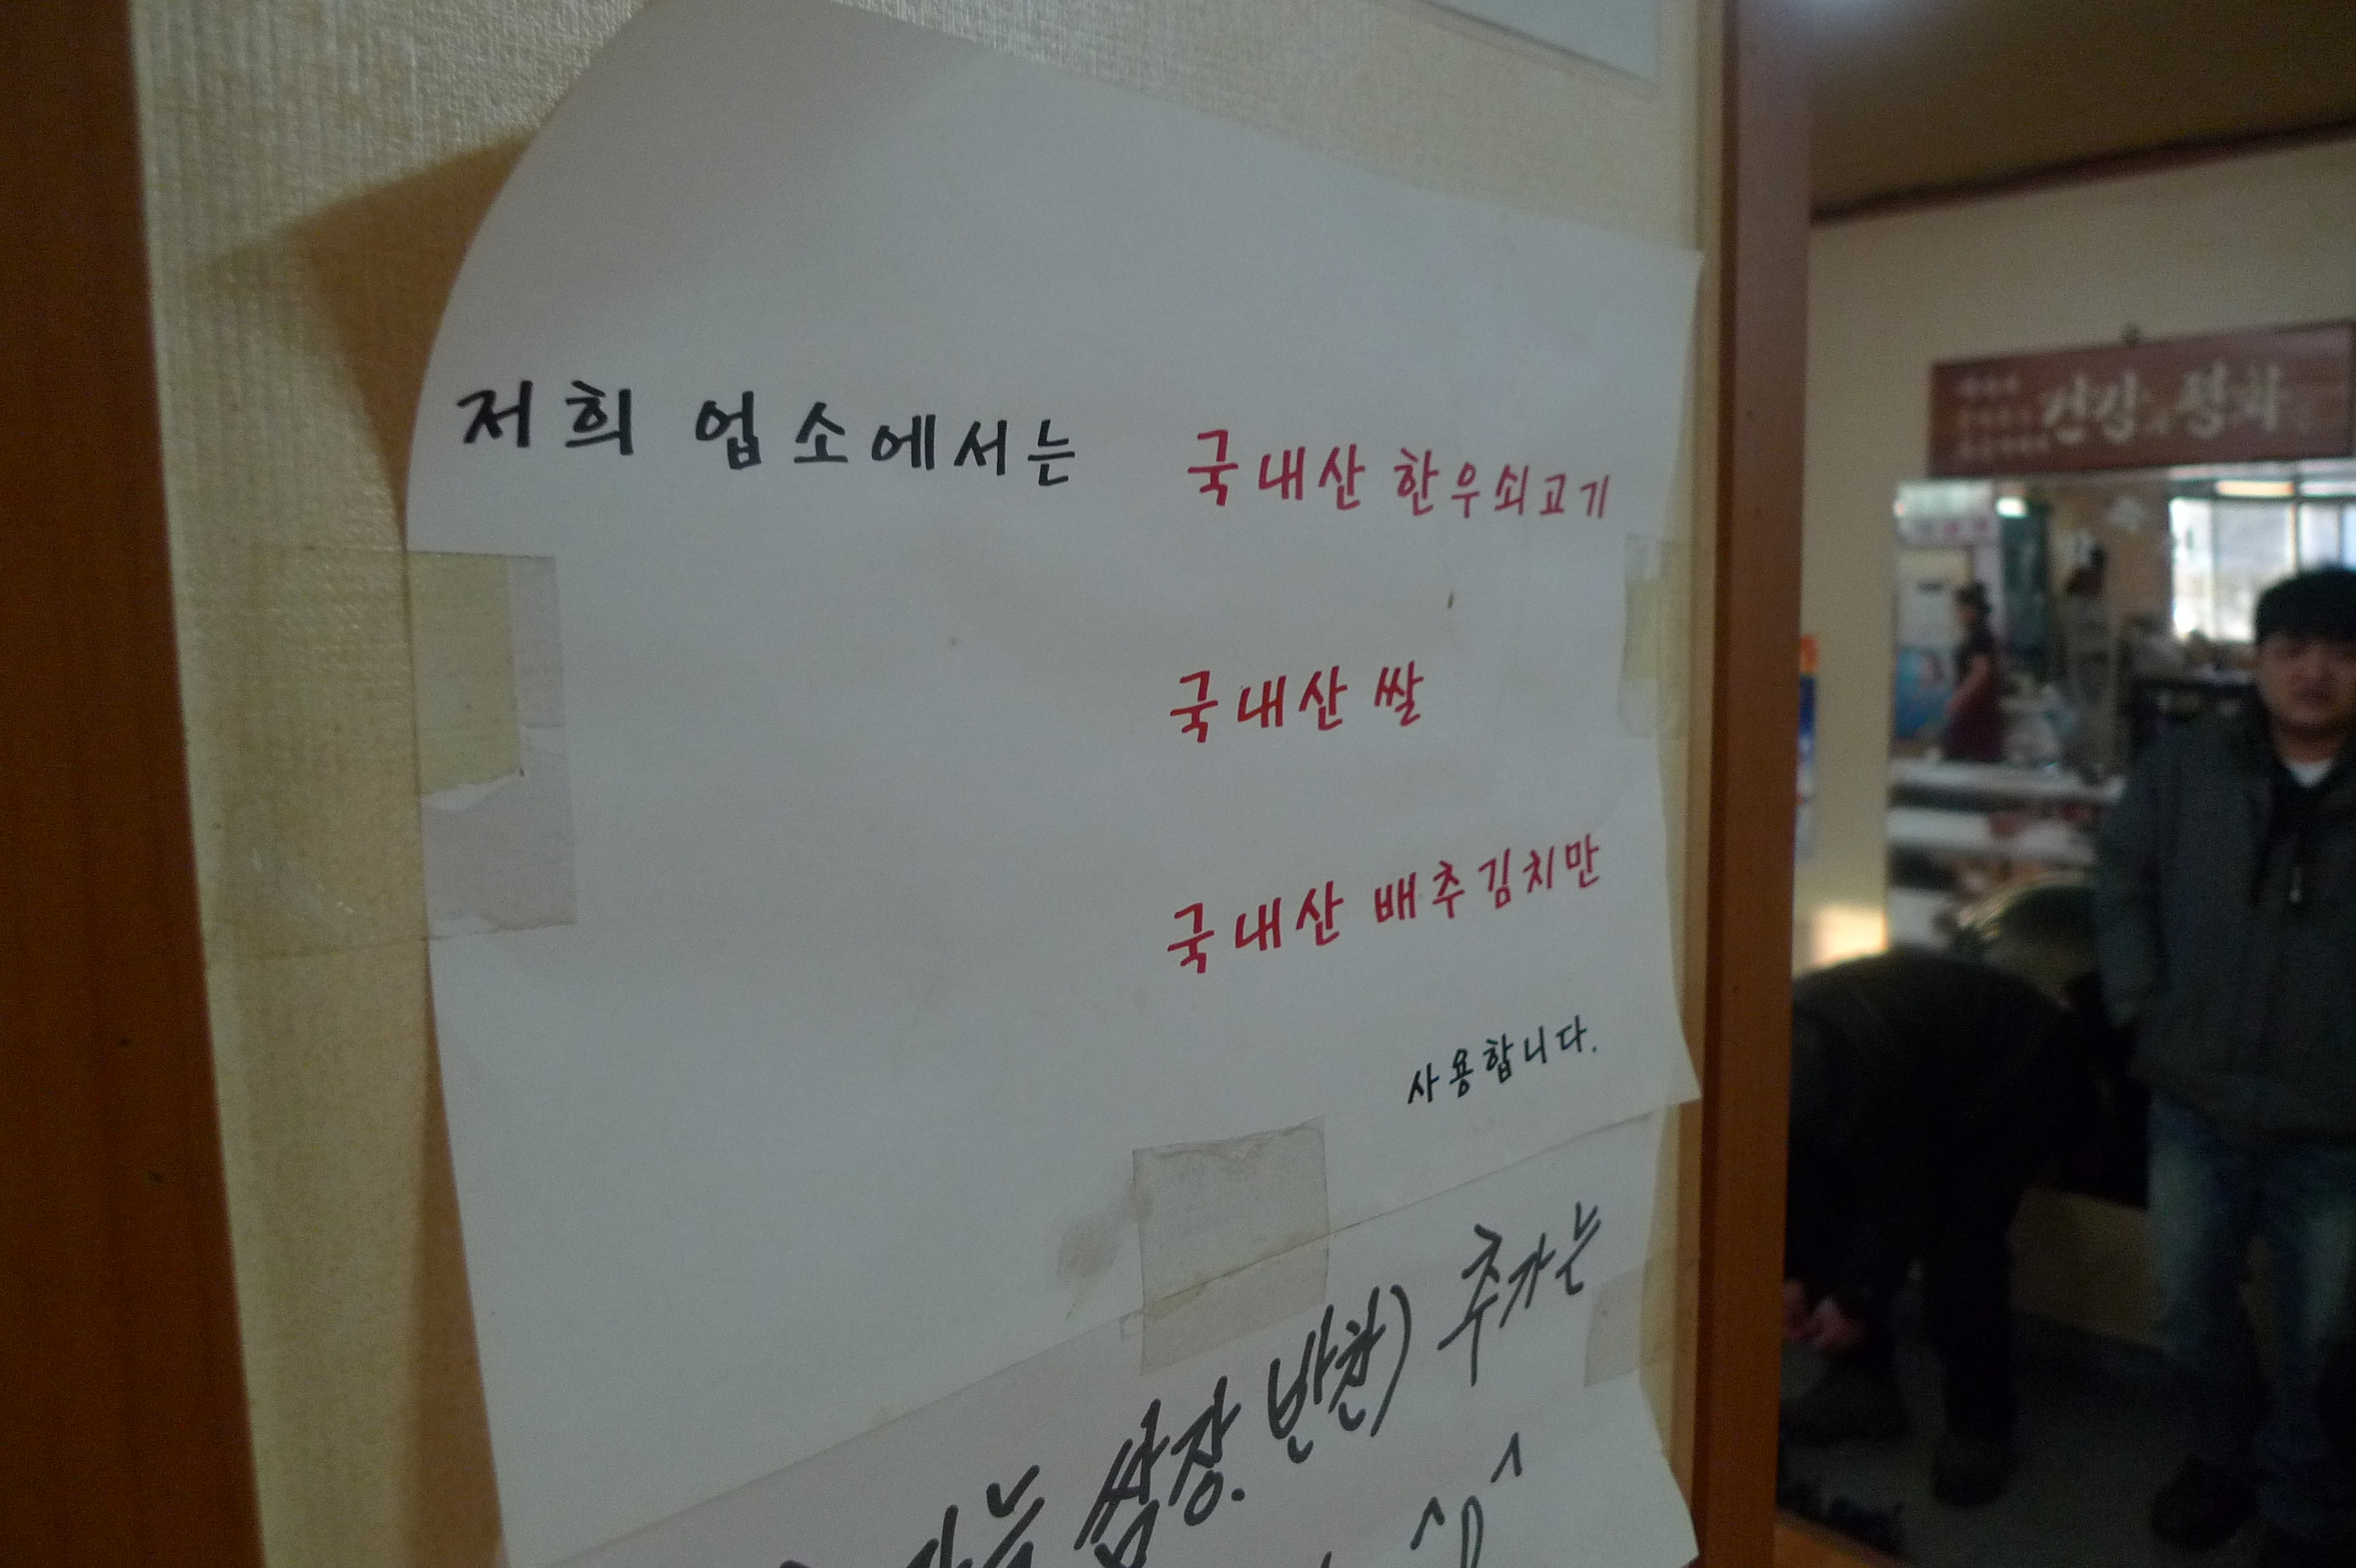 저희 업소에서는 국내산 한우쇠고기
국내산 쌀
국내산 배추김치만
사용합니다.
쌈장. 반찬) 추가는
건강과 평화